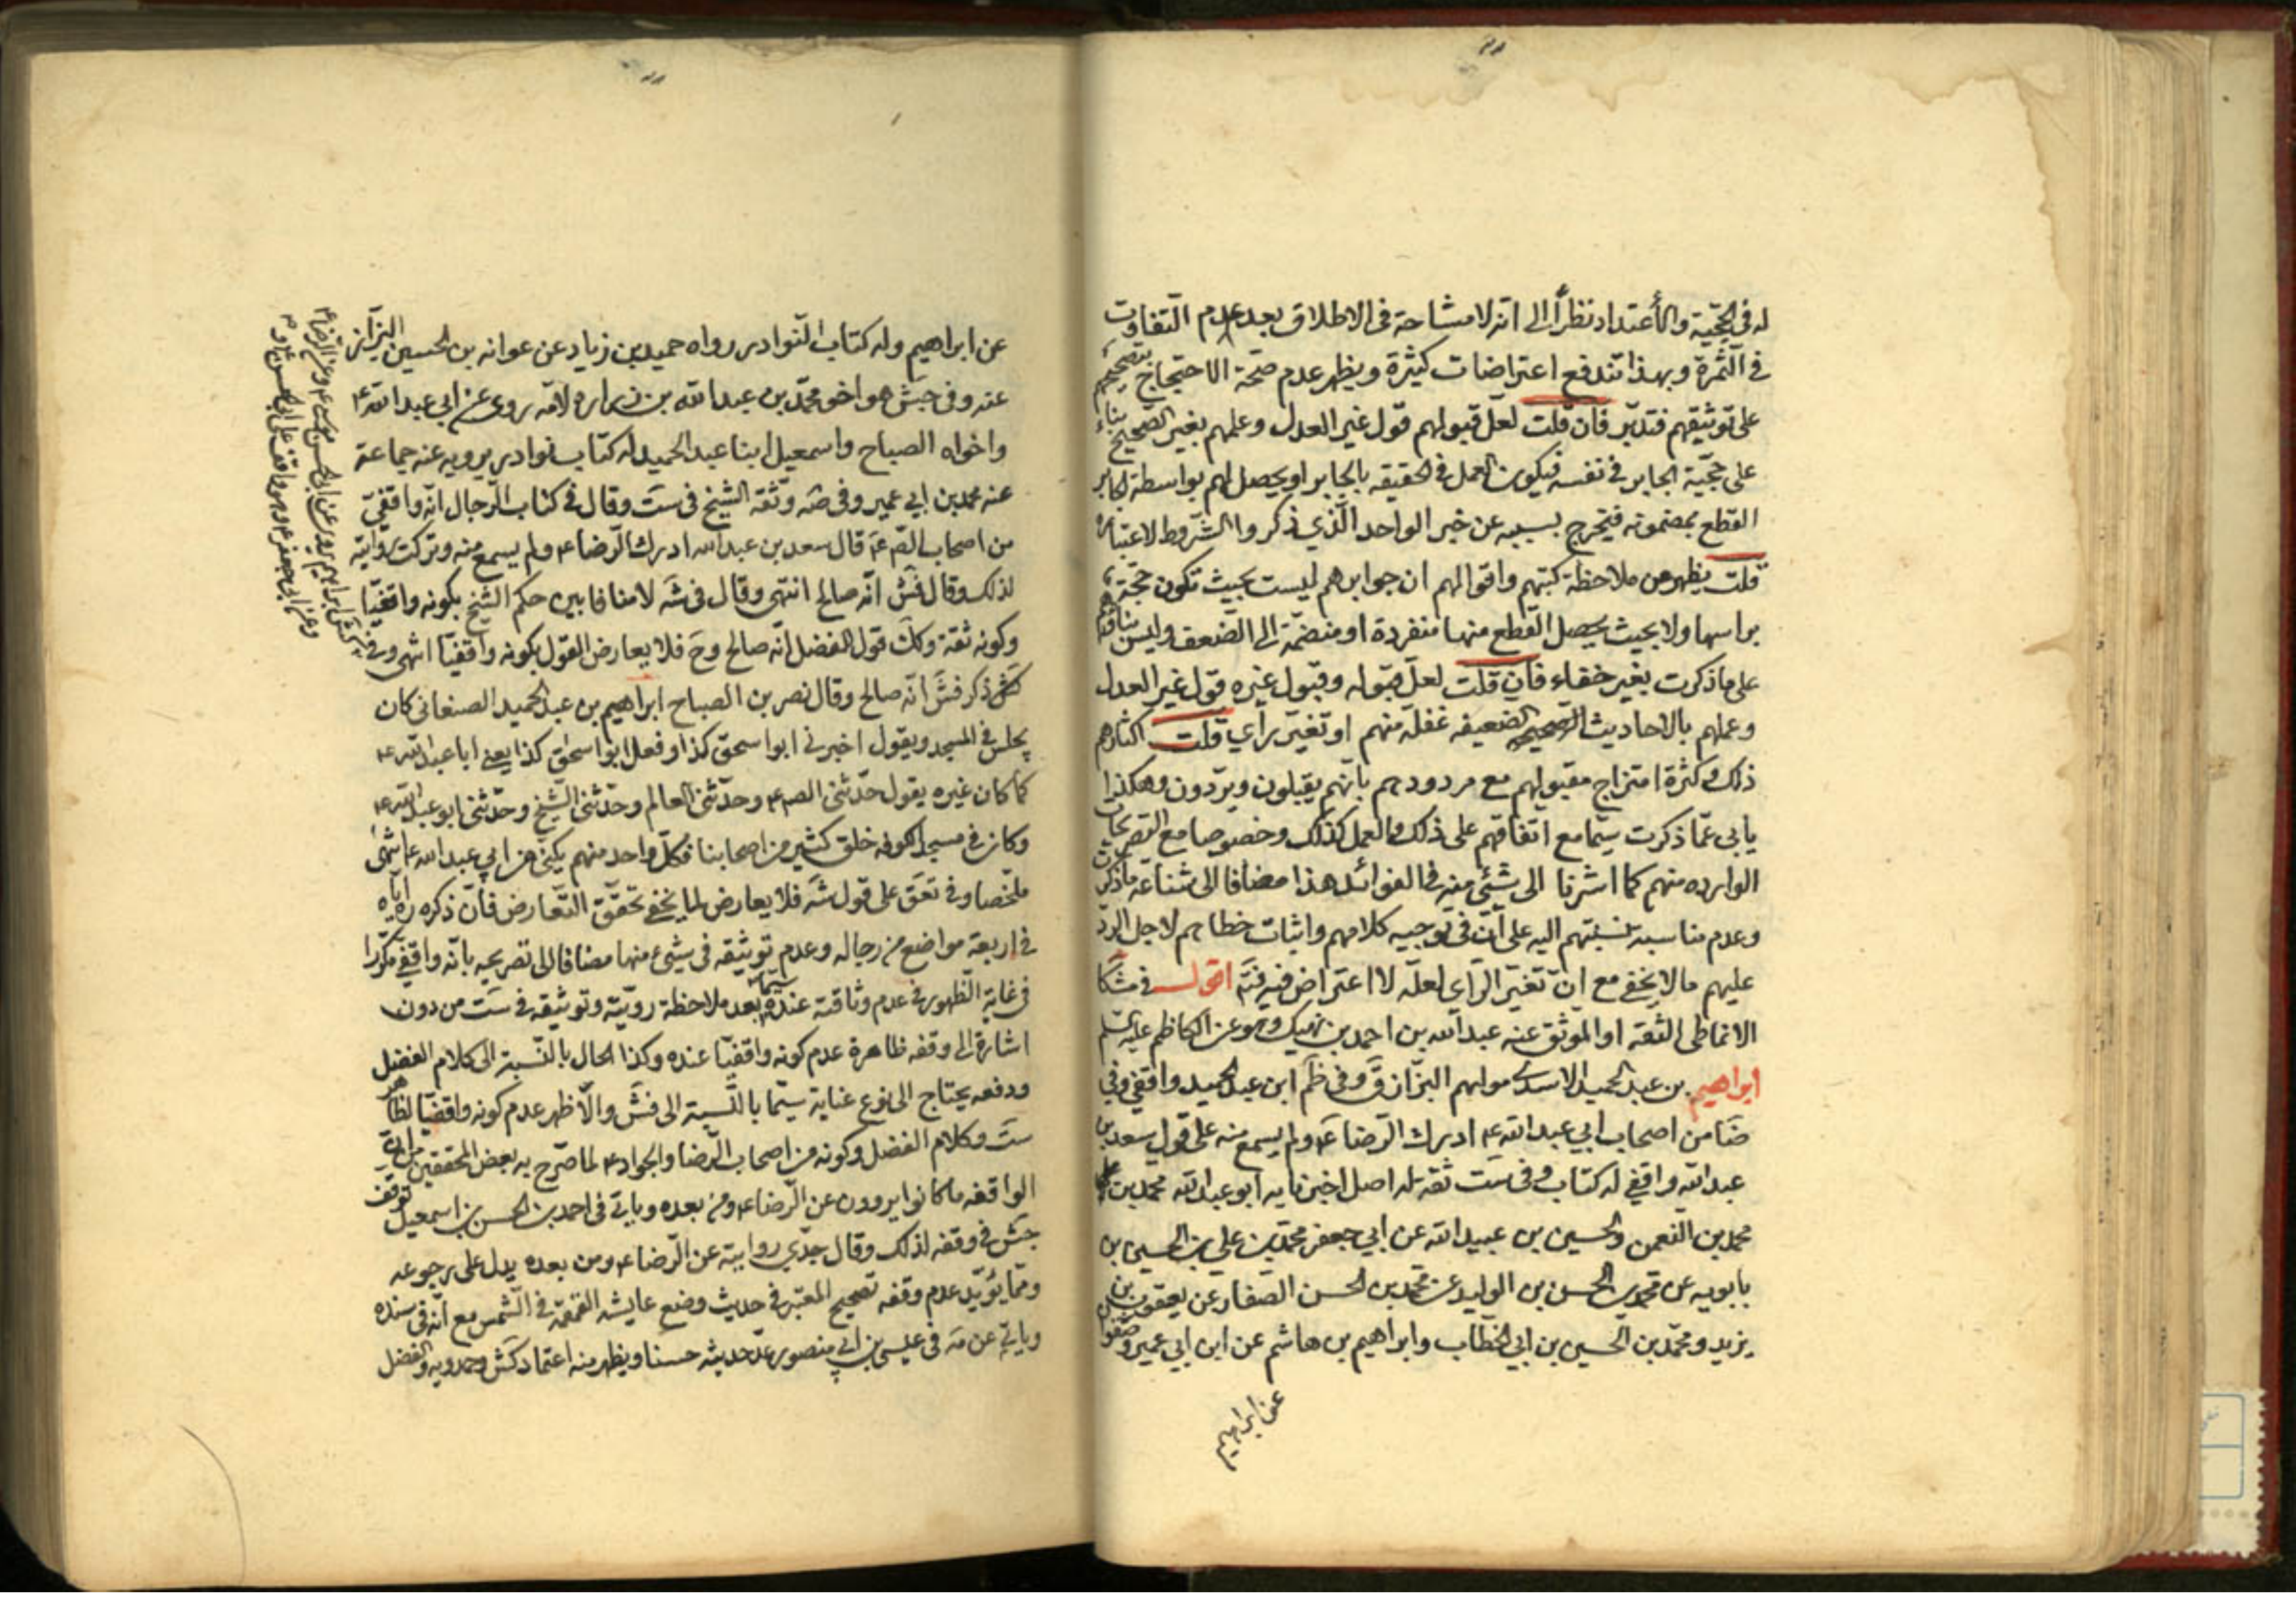 له في الحجّية والأعتداد نظراً الى انّه لا مشاحة في الاطلاق بعد عدم التفاوت
في الثمرة وبهذا تندفع اعتراضات كثيرة ويظهر عدم صحّة الاحتجاج بتصحيحهم
على توثيقهم فتدبّر فان قلت لعلّ قبولهم قول غير العدل وعلمهم بغير الصحيح بناء
على حجّية الجابر في نفسه فيكون العمل في الحقيقه بالجابر او يحصل لهم بواسطة الجابر
القطع بمضمونه فيخرج بسببه عن خبر الواحد الّذي ذكروا الشروط لاعتباره
قلت يظهر من ملاحظة كتبهم واقوالهم ان جوابرهم ليست بحيث تكون حجّة
براسها ولا بحيث يحصل القطع منها منفردة او منضمّة الى الضعف وليس بناؤهم
على ما ذكرت بغير خفاء فان قلت لعلّ قبوله وقبول غيره قول غير العدل
وعملهم بالاحاديث الضعيفه غفلة منهم او تغيّر رأي قلت اكثارهم
ذلك وكثرة امتزاج مقبولهم مع مردودهم بانّهم يقبلون ويردّون وهكذا
يابى عمّا ذكرت سيّما مع اتفاقهم على ذلك والعمل كذلك وخصوصا مع التصريحات
الوارده منهم كما اشرنا الى شيئ منه في الفوائد هذا مضافا الى شناعة ما ذكرت
وعدم مناسبة نسبتهم اليه على انّ في توجيه كلامهم واثبات خطاهم لاجل الردّ
عليهم ما لا يخفى مع انّ تغيّر الرّاى لعلّه لا اعتراض فيه فتم اقول في مشكا
الانماطى الثقة او الموثق عنه عبد الله بن احمد بن نهيك وهو عن الكاظم عليه السّلم
ابراهيم بن عبد الحميد الاسدى مولهم البزّاز ق وفي ظم ابن عبد الحميد واقفي وفي
ضا من اصحاب ابي عبد الله ع ادرك الرّضا ع ولم يسمع منه على قول سعد بن
عبد الله واقفي له كتاب وفي ست ثقة له اصل اخبرنا به ابو عبد الله محمد بن
محمد بن النعمن والحسين بن عبيد الله عن ابي جعفر محمّد بن علي بن الحسين بن
بابويه عن محمد بن الحسن بن الوليد عن محمّد بن الحسن الصّفار عن يعقوب بن
يزيد ومحمّد بن الحسين بن ابي الخطّاب وابراهيم بن هاشم عن ابن ابي عمير وصفوان
عن ابراهيم
عن ابراهيم وله كتاب النّوادر رواه حميد بن زياد عن عوانه بن الحسين البزّاز
عنه وفي جش هو اخو محمّد بن عبد الله بن زراره لامّه روى عن ابي عبد الله ع
واخواه الصباح واسمعيل ابنا عبد الحميد له كتاب نوادر يرويه عنه جماعة
عنه محمد بن ابي عمير وفي صه وثّقه الشّيخ في ست وقال في كتاب الرّجال انّه واقفيّ
من اصحاب الصّ ع قال سعد بن عبد الله ادرك الرّضا ع ولم يسمع منه وتركت روايته
لذلك وقال فش انّه صالح انتهى وقال في شه لا منافا بين حكم الشّيخ بكونه واقفيّا
وكونه ثقة وكك قول الفضل انّه صالح وح فلا يعارض القول بكونه واقفيّا انتهى وفي
كش ذكر فش انّه صالح وقال نصر بن الصباح ابراهيم بن عبد الحميد الصنعانى كان
يجلس في المسجد ويقول اخبرني ابو اسحق كذا وفعل ابو اسحق كذا يعنى ابا عبد الله ع
كما كان غيره يقول حدّثنى الص ع وحدّثنى العالم وحدّثنى الشيخ وحدّثنى ابو عبد الله ع
وكان في مسجد الكوفه خلق كثير من اصحابنا فكلّ واحد منهم يكنى عن ابي عبد الله ع انتهى
ملخّصا وفي تعق على قول شه فلا يعارض لما يخفى تحقّق التّعارض فانّ ذكره ره ايّاه
في اربعة مواضع من رجاله وعدم توثيقه في شيئ منها مضافا الى تصريحه بانّه واقفي مكرّرا
في غاية الظهور في عدم وثاقته عنده سيّما بعد ملاحظة رويّته وتوثيقه في ست من دون
اشارة الى وقفه ظاهرة عدم كونه واقفيّا عنده وكذا الحال بالنّسبة الى كلام الفضل
ودفعه يحتاج الى نوع عناية سيّما بالنّسبة الى فش والّاظهر عدم كونه واقفيّا لظاهر
ست وكلام الفضل وكونه من اصحاب الرّضا والجواد ع لما صرّح به بعض المحققين من انّ
الواقفه ما كانوا يروون عن الرّضا ع ومن بعده وياتى في احمد بن الحسن بن اسمعيل توقّف
جش في وقفه لذلك وقال جدّي روايته عن الرّضا ع ومن بعده يدل على رجوعه
وممّا يؤيّد عدم وقفه تصحيح المعتبر في حديث وضع عايشه القمقمة في الشّمس مع انّه في سنده
وياتى عن مه في عيسى بن ابي منصور عدّ حديثه حسنا ويظهر منه اعتماد كش وحمدويه والفضل